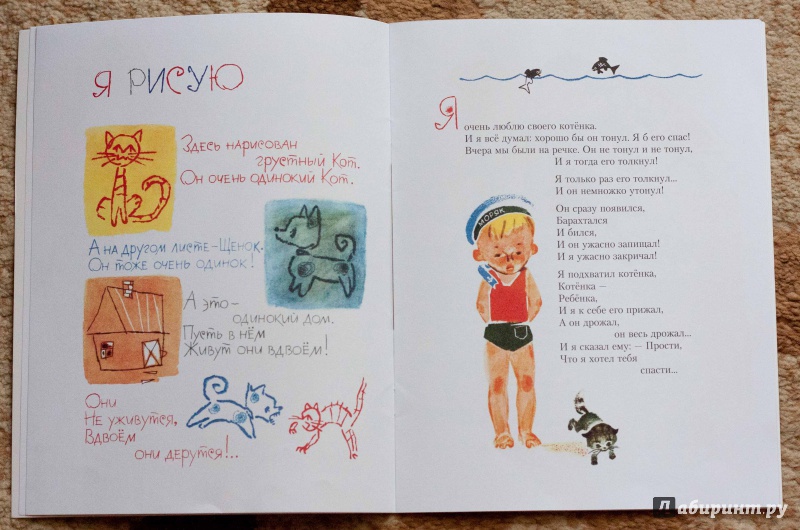 Я РИСУЮ
Здесь нарисован
грустный Кот.
Он очень одинокий Кот.
А на другом листе - Щенок.
Он тоже очень одинок!
А это -
одинокий дом.
Пусть в нём
Живут они вдвоём!
Они
Не уживутся,
Вдвоём
они дерутся!..
Я очень люблю своего котёнка.
И я всё думал: хорошо бы он тонул. Я б его спас!
Вчера мы были на речке. Он не тонул и не тонул,
И я тогда его толкнул!
Я только раз его толкнул...
И он немножко утонул!
Он сразу появился,
Барахтался
И бился,
И он ужасно запищал!
И я ужасно закричал!
Я подхватил котёнка,
Котёнка —
Ребёнка,
И я к себе его прижал,
А он дрожал,
он весь дрожал...
И я сказал ему: — Прости,
Что я хотел тебя
спасти...
МОРЯК
Лабиринт.ру